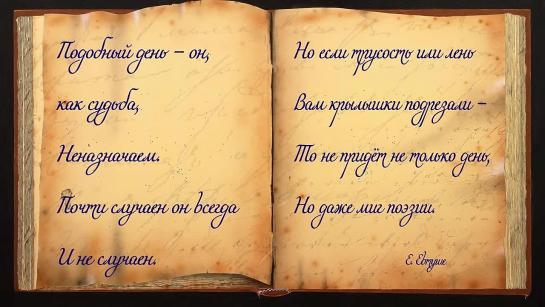 Подобный день – он,
как судьба,
Неназначаем.
Почти случаен он всегда
И не случаен.
Но если трусость или лень
Вам крылышки подрезали –
То не придёт не только день,
Но даже миг поэзии.
Е. Евтуше